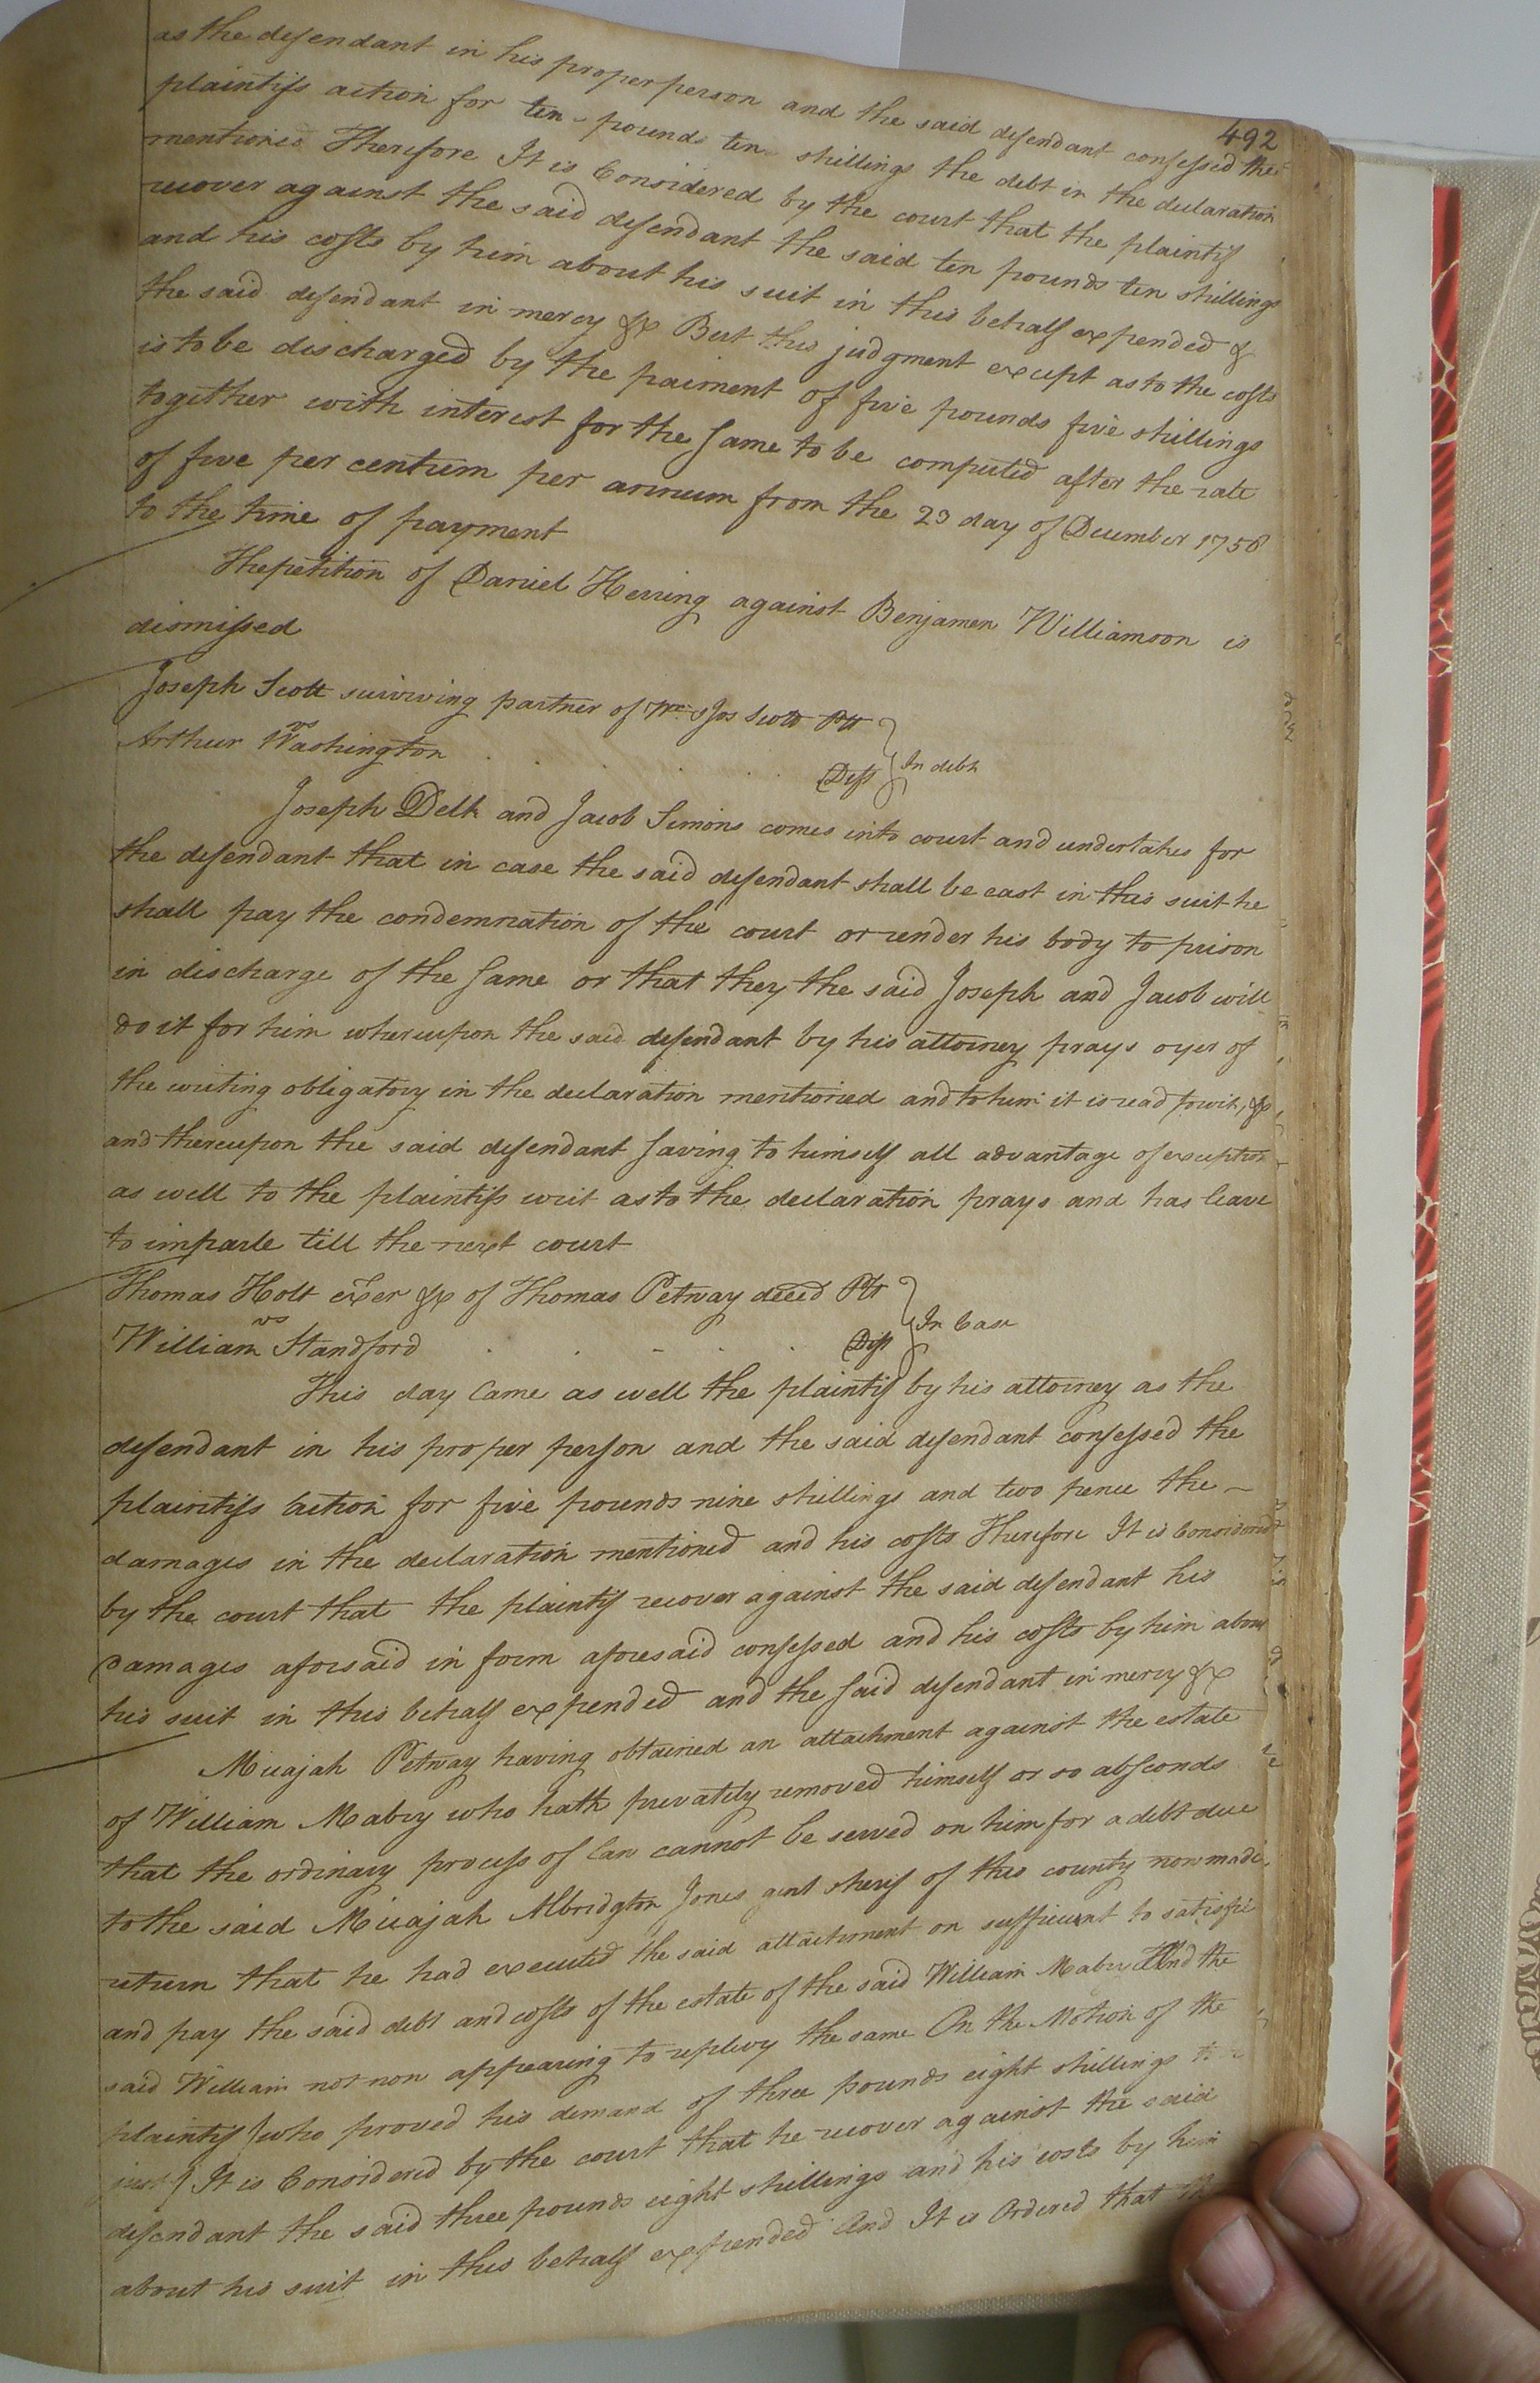 492
as the defendant in his proper person and the said defendant confessed the
plaintifs action for ten pounds ten shillings the debt in the declaration
mentioned Therefore It is Considered by the court that the plaintif
recover against the said defendant the said ten pounds ten shillings
and his costs by him about his suit in this behalf expended &
the said defendant in mercy &c But this judgment except as to the costs
is to be discharged by the paiment of five pounds five shillings
together with interest for the same to be computed after the rate
of five per centum per annum from the 23 day of December 1756
to the time of payment
The petition of Daniel Herring against Benjamen Williamson is
dismissed
Joseph Scott surviving partner of Wm & Jos Scott Plt
vs
In debt
Arthur Washington Deft
Joseph Delk and Jacob Simons comes into court and undertakes for
the defendant that in case the said defendant shall be cast in this suit he
shall pay the condemnation of the court or render his body to prison
in discharge of the same or that they the said Joseph and Jacob will
do it for him whereupon the said defendant by his attorney prays oyer of
the writing obligatory in the declaration mentioned and to him it is read towit, &c
and thereupon the said defendant saving to himself all advantage of exception
as well to the plaintifs writ as to the declaration prays and has leave
to imparle till the next court
Thomas Holt exer &c of Thomas Petway deced Plt
vs
In Case
William Standford Deft
This day Came as well the plaintif by his attorney as the
defendant in his proper person and the said defendant confessed the
plaintifs action for five pounds nine shillings and two pence the
damages in the declaration mentioned and his costs Therefore It is Considered
by the court that the plaintif recover against the said defendant his
Damages aforesaid in form aforesaid confessed and his costs by him about
his suit in this behalf expended and the said defendant in mercy &c
Micajah Petway having obtained an attachment against the estate
of William Mabry who hath privately removed himself or so absconds
that the ordinary process of law cannot be served on him for a debt due
to the said Micajah Albridgton Jones gent sherif of this county now made
return that he had executed the said attachment on sufficient to satisfie
and pay the said debt and costs of the estate of the said William Mabry And the
said William not now appearing to replevy the same On the Motion of the
plaintif (who proved his demand of three pounds eight shillings to be
just) It is Considered by the court that he recover against the said
defendant the said three pounds eight shillings and his costs by him
about his suit in this behalf expended And It is Ordered that